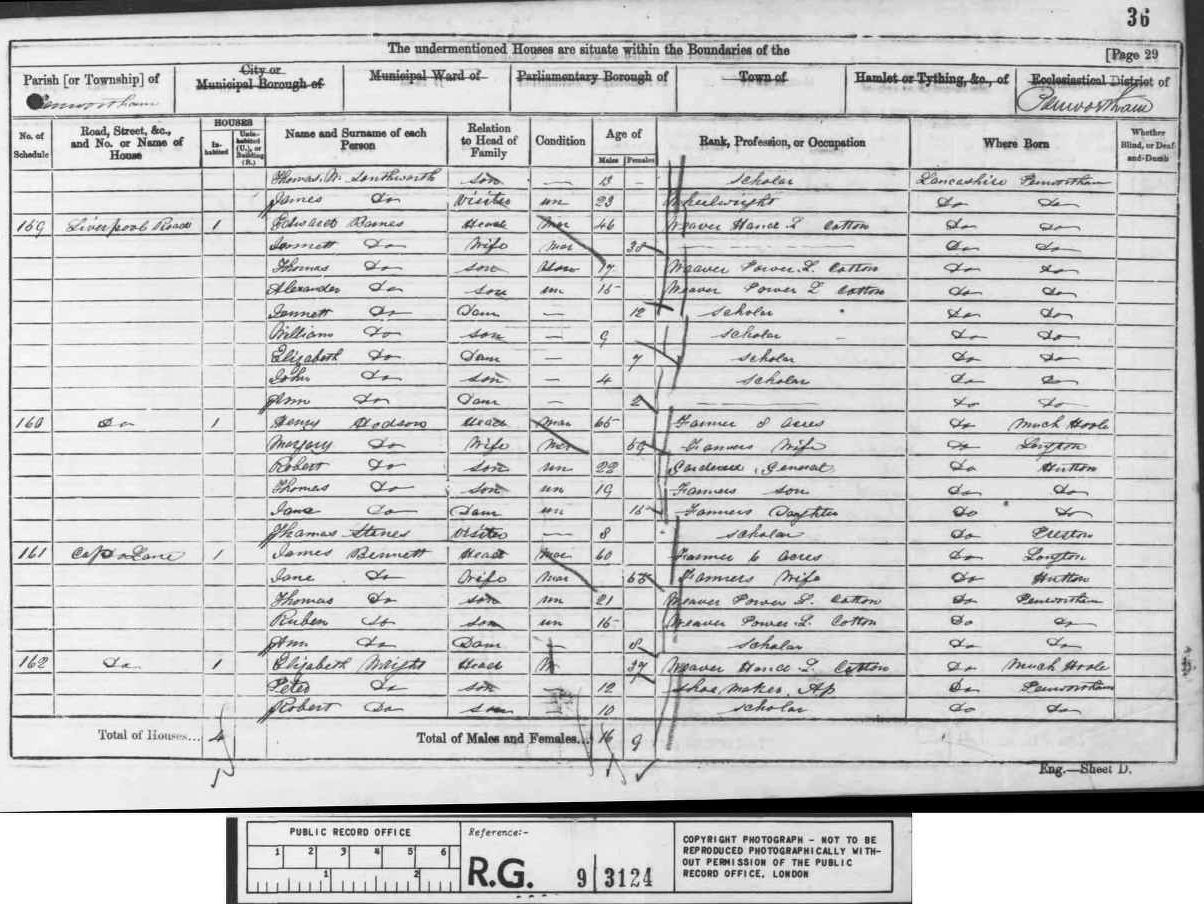 36
The undermentioned Houses are situate within the Boundaries of the
[Page 29
Parish [or Township] of City or Municipal Borough of Municipal Ward of Parliamentary Borough of Town of Hamlet or Tything, &c., of Ecclesiastical District of
Penwortham Penwortham
No. of Schedule Road, Street, &c., and No. or Name of House HOUSES Inhabited Uninhabited (U.), or Building (B.) Name and Surname of each Person Relation to Head of Family Condition Age of Males Females Rank, Profession, or Occupation Where Born Whether Blind, or Deaf-and-Dumb
Thomas W. Southworth son — 13 - scholar Lancashire Penwortham
James Do Visitor un 23 Wheelwright Do Do
159 Liverpool Road 1 Edward Barnes Head Mar 46 Weaver Hand L Cotton Do Do
Jannett Do Wife Mar 38 Do Do
Thomas Do son 17 Weaver Power L. Cotton Do Do
Alexander Do son un 15 Weaver Power L Cotton Do Do
Jannett Do Daur — 12 scholar Do Do
William Do son — 9 scholar Do Do
Elizabeth Do Daur — 7 scholar Do Do
John Do son — 4 scholar Do Do
Ann Do Daur — 2 Do Do
160 Do 1 Henry Hodson Head Mar 65 Farmer 8 acres Do Much Hoole
Margery Do Wife Mar Farmers Wife Do Longton
Robert Do son un 22 Gardener General Do Hutton
Thomas Do son un 19 Farmers son Do Do
Jane Do Daur un 15 Farmers Daughter Do Do
Thomas Visitor — 8 scholar Do Preston
161 Lane 1 James Bennett Head Mar 60 Farmer 6 acres Do Longton
Jane Do Wife Mar Farmers Wife Do Hutton
Thomas Do son un 21 Weaver Power L. Cotton Do Penwortham
Ruben Do son un 15 Weaver Power L. Cotton Do Do
Ann Do Daur — 8 scholar Do Do
162 Do 1 Elizabeth Head 37 Weaver Hand L. Cotton Do Much Hoole
Peter Do son 12 Shoe maker, Ap Do Penwortham
Robert Do son 10 scholar Do Do
Total of Houses... 4 Total of Males and Females... 16 9
Eng.—Sheet D.
PUBLIC RECORD OFFICE
1 2 3 4 5 6
1 2
Reference:-
R.G. 9 3124
COPYRIGHT PHOTOGRAPH - NOT TO BE
REPRODUCED PHOTOGRAPHICALLY WITH-
OUT PERMISSION OF THE PUBLIC
RECORD OFFICE, LONDON